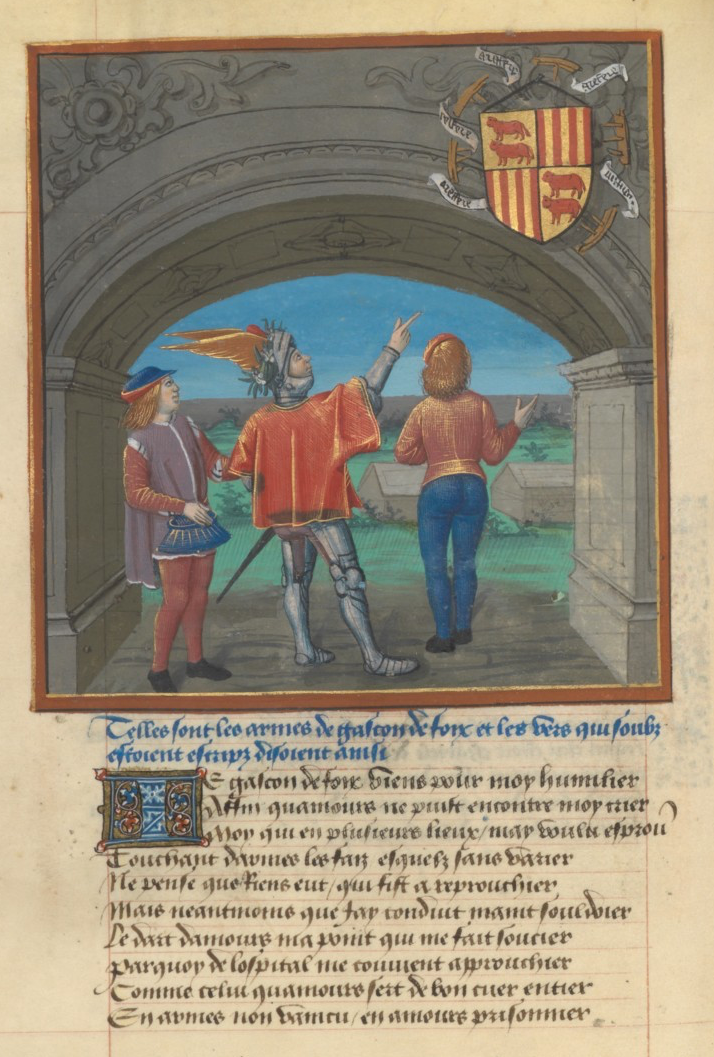 Telles sont les armes de gascon de foix et les vers qui soubz
estoient escripz disoient ainsi
Je gascon de foix viens pour moy humilier
Affin quamours ne puist encontre moy crier
Moy qui en plusieurs lieux / may voulu esprou
Touchant darmes les faiz esquelz sans varier
Ne pense que Riens eut / qui fist a reprouchier
Mais neantmoins que Jay conduit maint souldoier
Le dart damours ma point qui me fait soucier
Parquoy de lospital me convient approuchier
Comme celui quamours sert de bon cuer entier
En armes non vaincu / en amours prisonnier